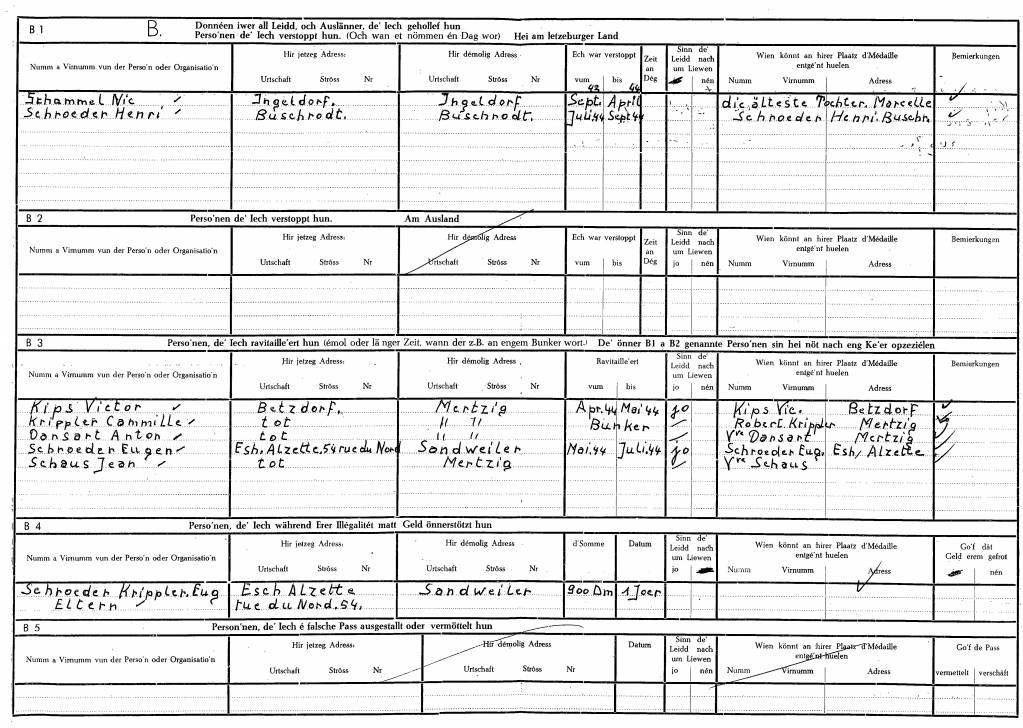 B 1 B. Donnéen iwer all Leidd, och Auslänner, de' Iech gehollef hun
Perso'nen de' Iech verstoppt hun. (Och wan et nömmen én Dag wor) Hei am letzeburger Land
Numm a Virnumm vun der Perso'n oder Organisatio'n Hir jetzeg Adress: Hir démolig Adress Ech war verstoppt Zeit an Dég Sinn de' Leidd nach um Liewen Wien könnt an hirer Plaatz d'Médaille entgé'nt huelen Bemierkungen
Urtschaft Ströss Nr Urtschaft Ströss Nr vum bis nén Numm Virnumm Adress
43 44
Schammel Nic Ingeldorf. Ingeldorf Sept. April die älteste Tochter. Marcelle
Schroeder Henri Buschrodt. Buschrodt. Juli 44 Sept 44 Schroeder Henri. Buschr.
B 2 Perso'nen de' Iech verstoppt hun. Am Ausland
Numm a Virnumm vun der Perso'n oder Organisatio'n Hir jetzeg Adress: Hir démolig Adress Ech war verstoppt Zeit an Dég Sinn de' Leidd nach um Liewen Wien könnt an hirer Plaatz d'Médaille entgé'nt huelen Bemierkungen
Urtschaft Ströss Nr Urtschaft Ströss Nr vum bis jo nén Numm Virnumm Adress
B 3 Perso'nen, de' Iech ravitaille'ert hun (émol oder lä nger Zeit, wann der z.B. an engem Bunker wort.) De' önner B1 a B2 genannte Perso'nen sin hei nöt nach eng Ke'er opzeziélen
Numm a Virnumm vun der Perso'n oder Organisatio'n Hir jetzeg Adress: Hir démolig Adress Ravitaille'ert Sinn de' Leidd nach um Liewen Wien könnt an hirer Plaatz d'Médaille entgé'nt huelen Bemierkungen
Urtschaft Ströss Nr Urtschaft Ströss Nr vum bis jo nén Numm Virnumm Adress
Kips Victor Betzdorf. Mertzig Apr. 44 Mai 44 jo Kips Vic. Betzdorf
Krippler Cammille tot " " Bunker Robert. Krippler Mertzig
Dansart Anton tot " " Vve Dansart Mertzig
Schroeder Eugen Esh. Alzette, 54 rue du Nord Sandweiler Mai. 44 Juli. 44 jo Schroeder Eug. Esh/Alzette
Schaus Jean tot Mertzig Vve Schaus
B 4 Perso'nen, de' Iech während Erer Illégalitét matt Geld önnerstötzt hun
Numm a Virnumm vun der Perso'n oder Organisatio'n Hir jetzeg Adress: Hir démolig Adress d'Somme Datum Sinn de' Leidd nach um Liewen Wien könnt an hirer Plaatz d'Médaille entgé'nt huelen Go'f dât Geld erem gefrot
Urtschaft Ströss Nr Urtschaft Ströss Nr jo Numm Virnumm Adress nén
Schroeder Krippler. Eug Esch Alzette Sandweiler 900 Dm 1 Joer
Eltern rue du Nord. 54.
B 5 Person'nen, de' Iech é falsche Pass ausgestallt oder vermöttelt hun
Numm a Virnumm vun der Perso'n oder Organisatio'n Hir jetzeg Adress: Hir démolig Adress Datum Sinn de' Leidd nach um Liewen Wien könnt an hirer Plaatz d'Médaille entgé'nt huelen Go'f de Pass
Urtschaft Ströss Nr Urtschaft Ströss Nr jo nén Numm Virnumm Adress vermettelt verschäft